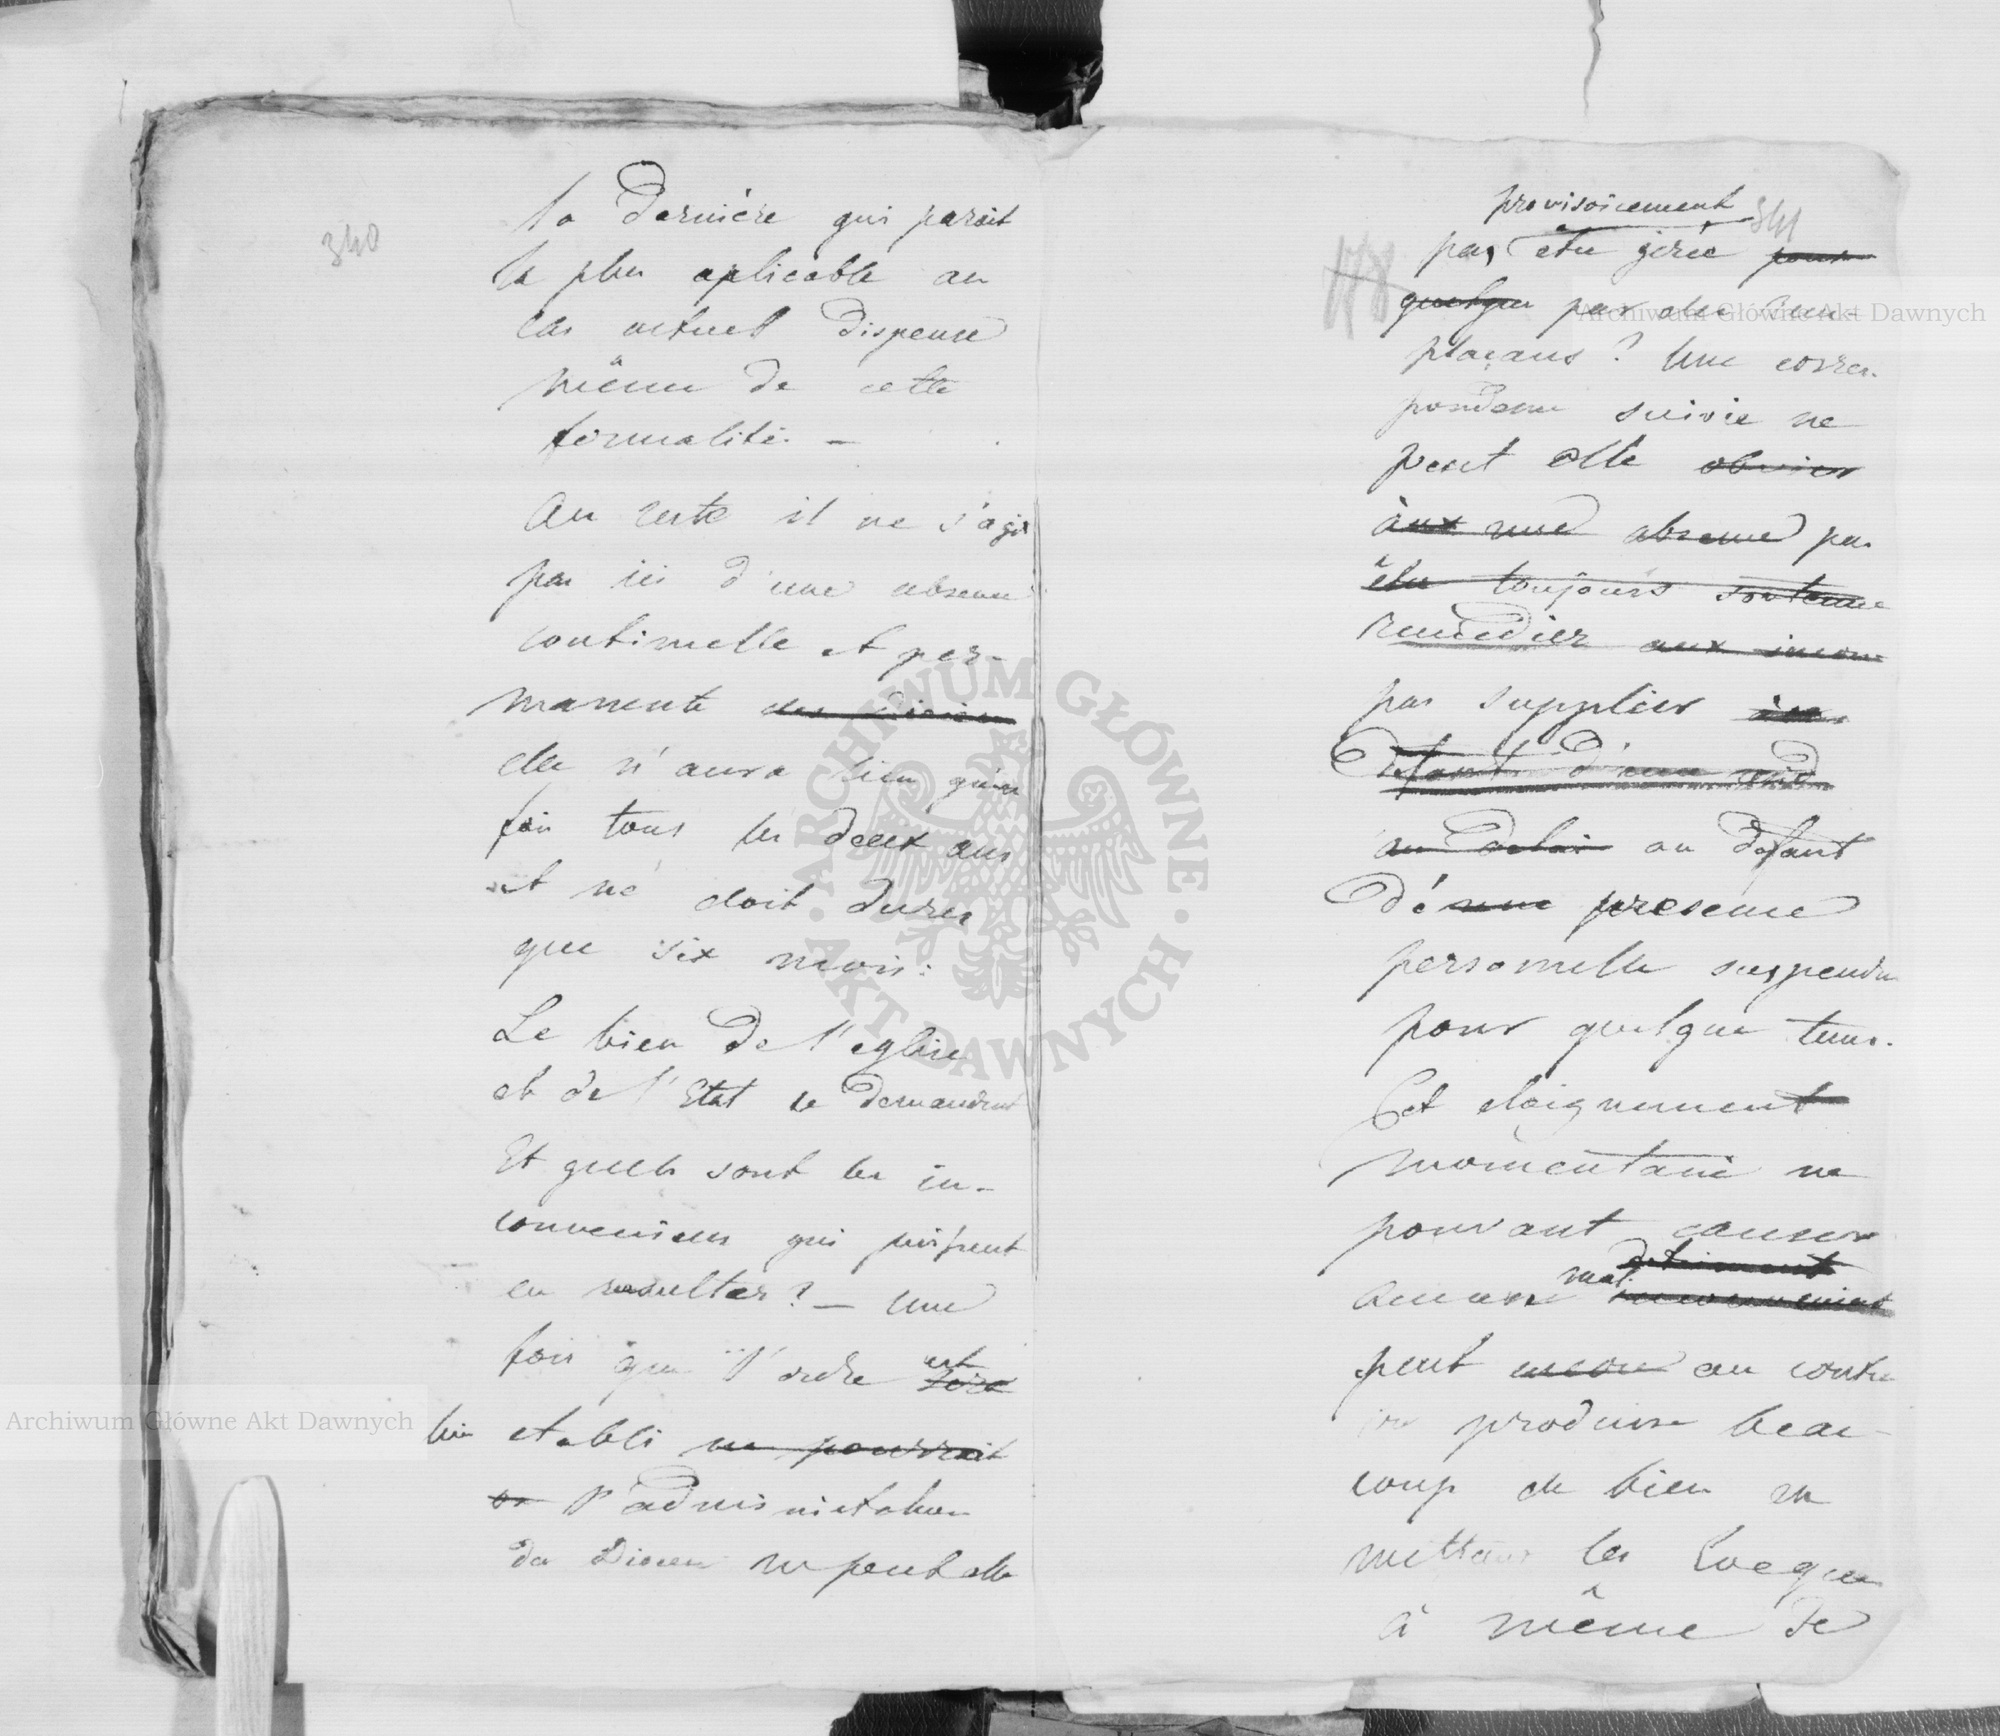 340
la Dernière qui parait
la plus aplicable au
cas actuel Dispense
même de cette
formalité. —
Au reste il ne s'agit
pas ici d'une absence
continuelle et per-
manente
elle n'aura lieu qu'une
fois tous les deux ans
et ne doit durer
que six mois:
Le bien de l'eglise
et de l'Etat le demandent
Et quels sont les in-
conveniens qui puissent
en resulter? — Une
fois que l'ordre est sera
bien etabli ne pourrait
on l'administration
du Diocese ne peut elle
341
178
provisoirement
pas être gerée pour
quelque par des Rem-
plaçans? Une corres-
pondence suivie ne
peut elle obvier
aux une absence pas
être toujours soutenue
remedier aux incon
pas supplier
Defaut d'une
au Delai au Defaut
D'une presence
personnelle suspendue
pour quelque tems.
Cet eloignement
momentané ne
pouvant causer
detriment
aucun mal inconvenient
peut encore au contra
ire produire beau-
coup de bien en
mettant les Eveques
à même de
Archiwum Główne Akt Dawnych
Archiwum Główne Akt Dawnych
ARCHIWUM GŁÓWNE · AKT DAWNYCH ·